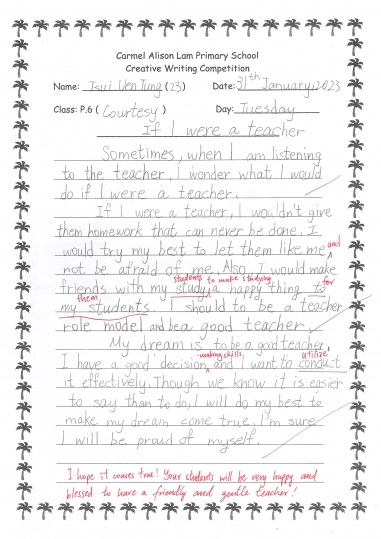 Carmel Alison Lam Primary School
Creative Writing Competition
Name: Tsui Uen Tung (23) Date: 31th January, 2023
Class: P.6 ( Courtesy ) Day: Tuesday
If I were a teacher
Sometimes, when I am listening
to the teacher, I wonder what I would
do if I were a teacher.
If I were a teacher, I wouldn't give
them homework that can never be done. I
would try my best to let them like me and
not be afraid of me. Also, I would make
students to make studying for
friends with my study, a happy thing to
them
my students. I should to be a teacher
role model and be a good teacher.
My dream is to be a good teacher.
-making skills utilize
I have a good decision and I want to conduct
it effectively. Though we know it is easier
to say than to do, I will do my best to
make my dream come true. I'm sure
I will be proud of myself.
I hope it comes true! Your students will be very happy and
blessed to have a friendly and gentle teacher!